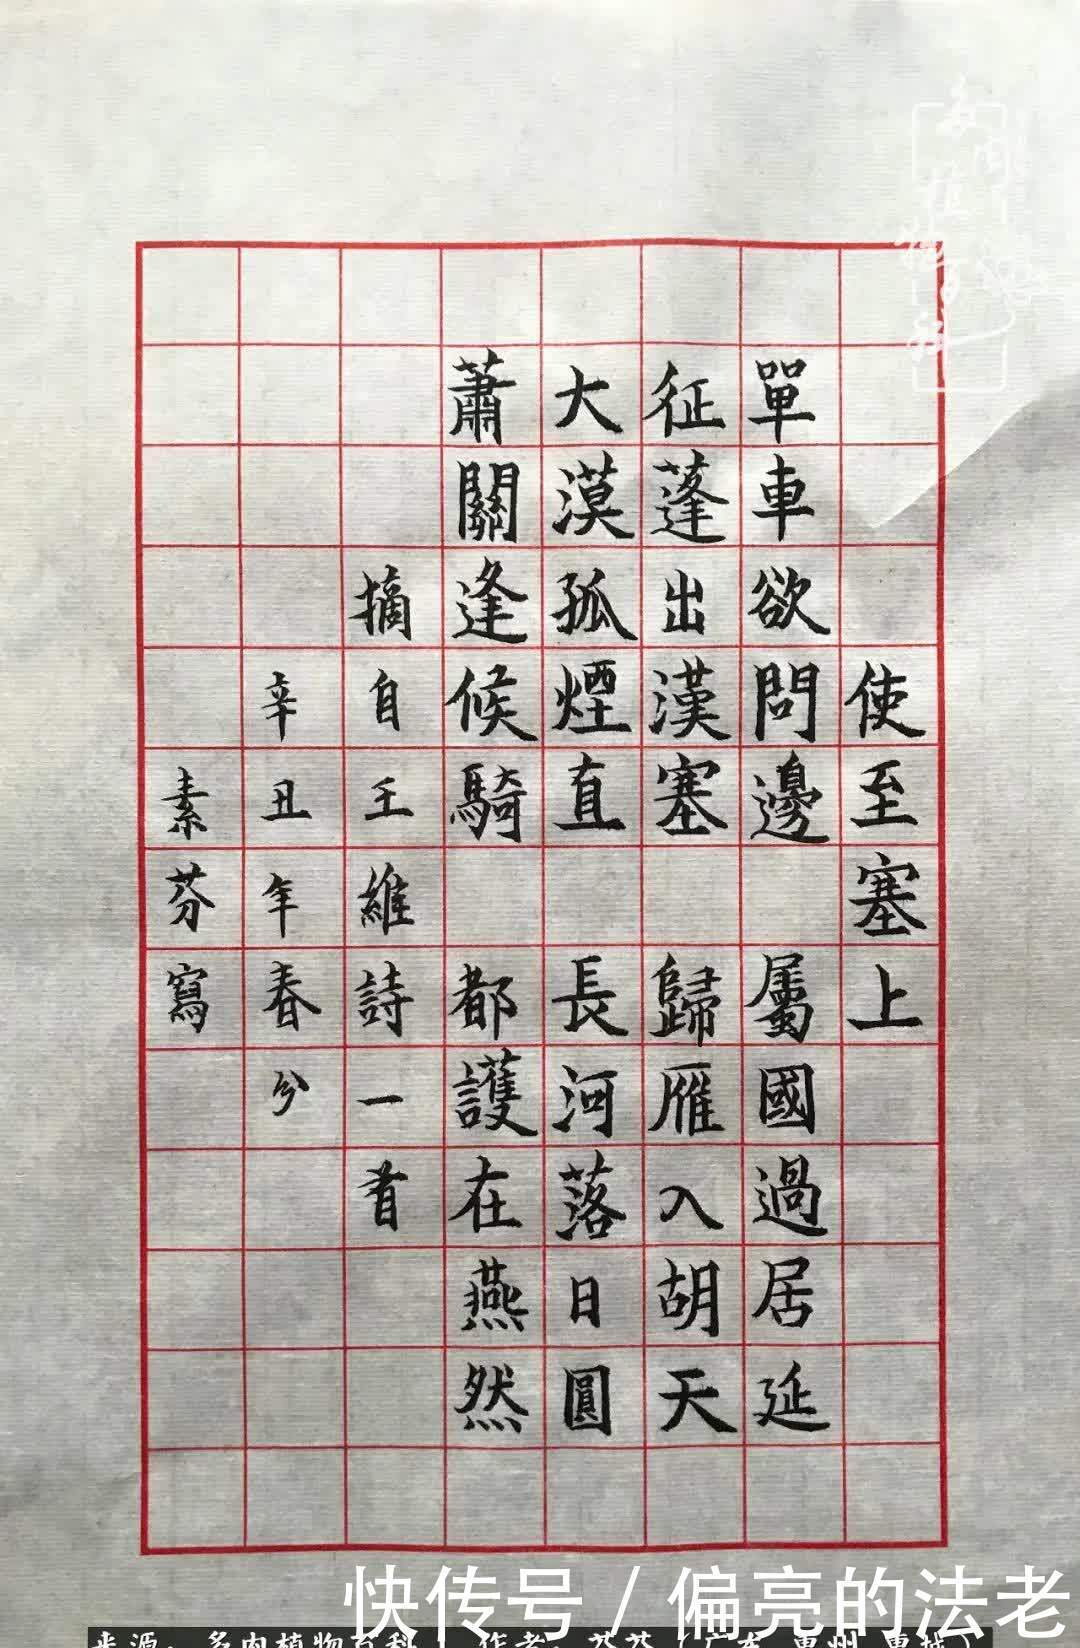 使至塞上
單車欲問邊 屬國過居延
征蓬出漢塞 歸雁入胡天
大漠孤煙直 長河落日圓
蕭關逢候騎 都護在燕然
摘自王維詩一首
辛丑年春分
素芬寫
快传号/偏亮的法老
来源：多肉植物百科 作者：芬芬 广东 惠州 惠城